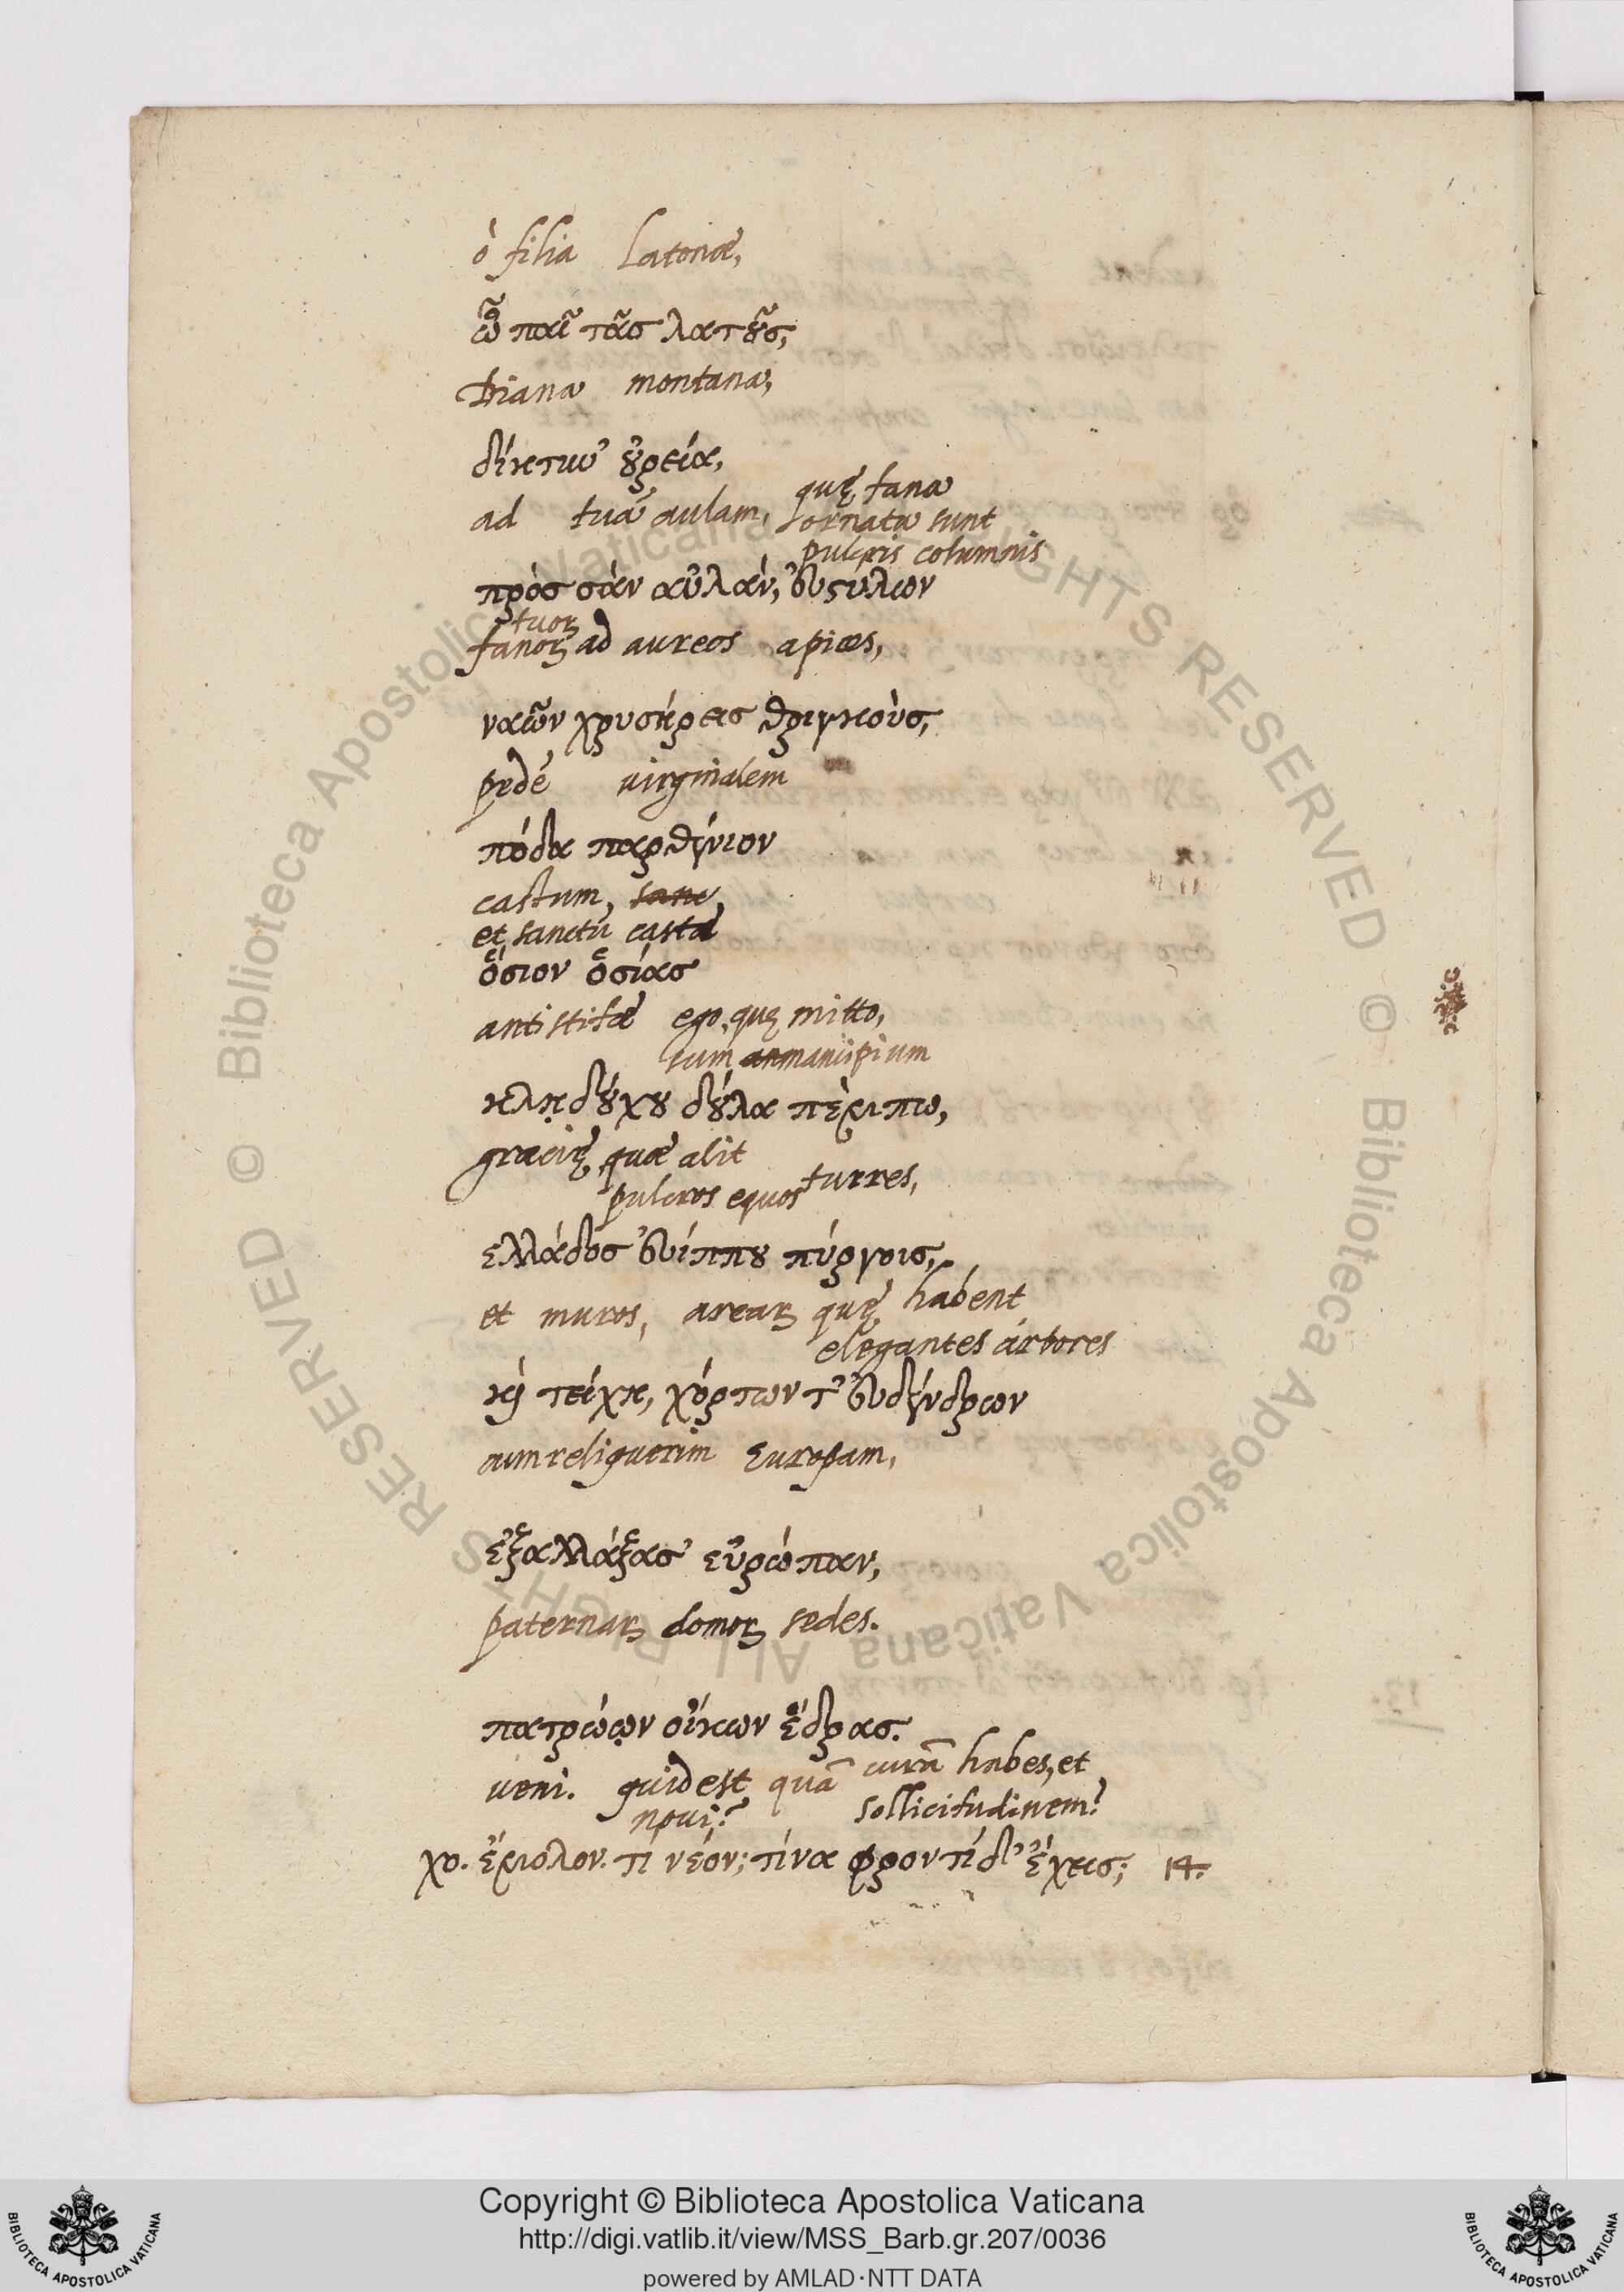 ò filia Latonæ,
ὦ παῖ τᾶσ λατοῦσ,
Diana montana,
δίκτυν' οὐρεία,
quę fana
ad tuã aulam, ornata sunt
pulcris columnis
πρὸσ σὰν αὐλὰν, εὐστύλων
tuoꝝ
fanoꝝ ad aureos apices,
ναῶν χρυσήρεισ θριγκοὺσ,
pedé virginalem
πόδα παρθένιον
castum, sanc,
et sanctũ castæ
ὅσιον ὁσίασ
antistitæ ego, quę mitto,
sum an mancipium
κλῃδούχου δούλα πέμπω,
graecię quæ alit
pulcros equos turres,
ελλάδοσ εὐίππου πύργουσ,
et muros, arearꝝ quę habent
elegantes árbores
καὶ τείχη, χόρτων τ' εὐδένδρων
cum reliquerim Europam,
ἐξαλλάξασ' εὐρώπαν,
paternaꝝ domoꝝ sedes.
πατρῴων οἴκων ἕδρασ.
veni. quid est quã curã habes, et
novi? sollicitudinem?
χο. ἔμολον. τί νέον; τίνα φροντίδ' ἔχεισ; 14.
© Biblioteca Apostolica Vaticana ALL RIGHTS RESERVED
© Biblioteca Apostolica Vaticana ALL RIGHTS RESERVED
Copyright © Biblioteca Apostolica Vaticana
http://digi.vatlib.it/view/MSS_Barb.gr.207/0036
powered by AMLAD·NTT DATA
BIBLIOTECA APOSTOLICA VATICANA
BIBLIOTECA APOSTOLICA VATICANA